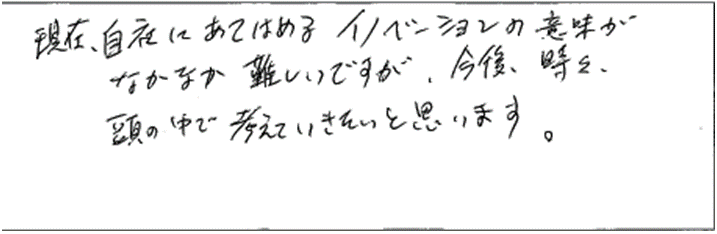 現在、自社にあてはめるイノベーションの意味が
なかなか難しいですが、今後、時々、
頭の中で考えていきたいと思います。